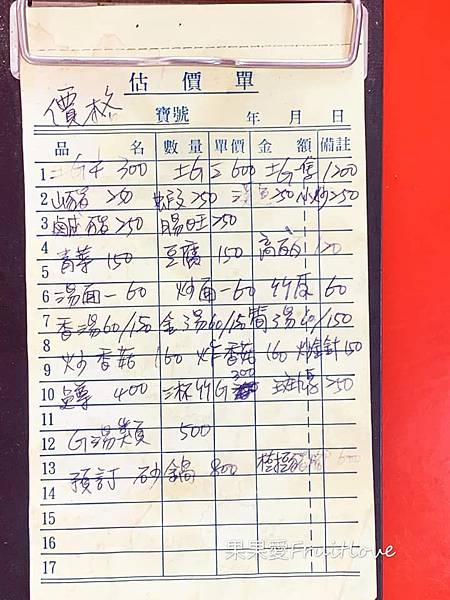 估價單
價格
寶號 年 月 日
品名 數量 單價 金額 備註
1 土G 300 土G 600 土G隻 1200
2 山豬 250 蝦 250 250 小炒 250
3 鹹豬 250 腸旺 250
4
5 青菜 150 豆腐 150 高 120
6 湯面一 60 炒面一 60 竹 60
7 香湯 60/150 金湯 60/150 筒湯 60/150
8
9 炒香菇 160 炸香菇 160 炒金針 150
10 400 三杯竹G 300 250
11
12 G湯類 500
13
14 預訂 砂鍋 800 600
15
16
17
果果愛FruitLove